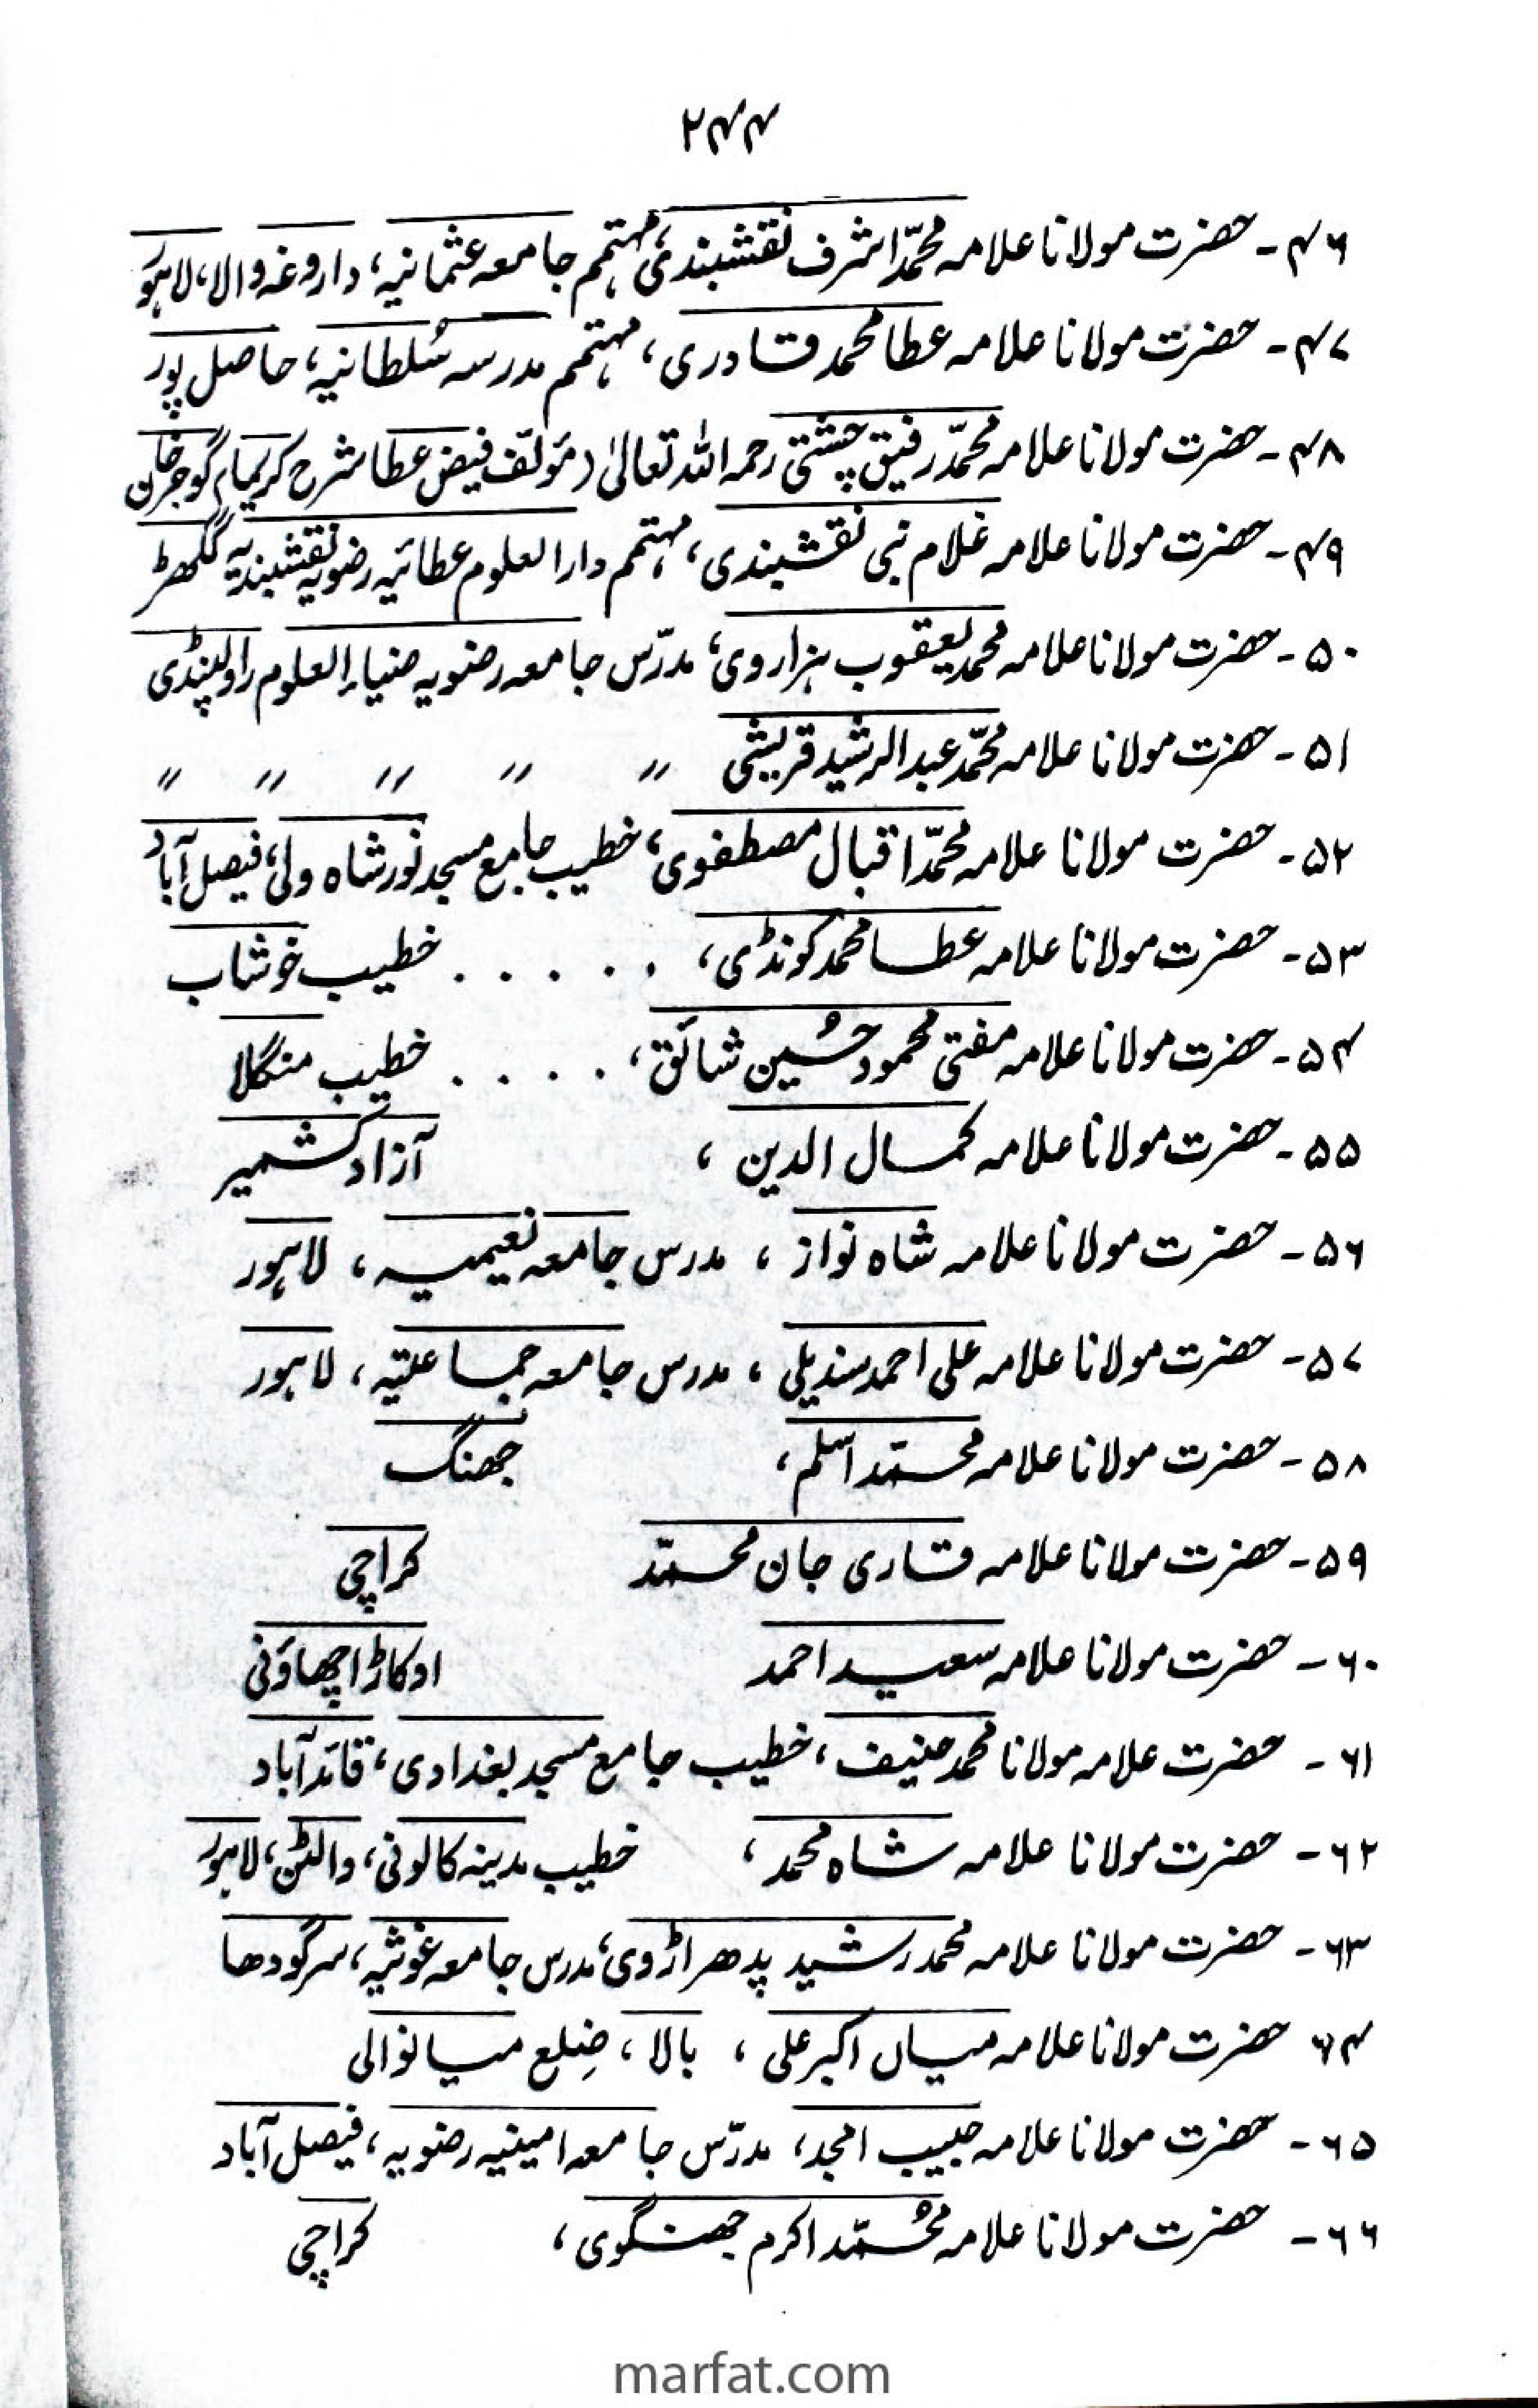 ۲۴۴
۴۶۔ حضرت مولانا علامہ محمّد اشرف نقشبندی، مہتمم جامعہ عثمانیہ، داروغہ والا، لاہور
۴۷۔ حضرت مولانا علامہ عطا محمد قادری، مہتمم مدرسہ سُلطانیہ، حاصل پور
۴۸۔ حضرت مولانا علامہ محمّد رفیق چشتی رحمہ اللہ تعالیٰ (مؤلّف فیض عطا شرح کریما) گوجر خان
۴۹۔ حضرت مولانا علامہ غلام نبی نقشبندی، مہتمم دار العلوم عطائیہ رضویہ نقشبندیہ گکھڑ
۵۰۔ حضرت مولانا علامہ محمد یعقوب ہزاروی، مدرّس جامعہ رضویہ ضیاء العلوم راولپنڈی
۵۱۔ حضرت مولانا علامہ محمّد عبدالرشید قریشی 〃 〃 〃 〃 〃
۵۲۔ حضرت مولانا علامہ محمّد اقبال مصطفوی، خطیب جامع مسجد نور شاہ ولی، فیصل آباد
۵۳۔ حضرت مولانا علامہ عطا محمد گونڈی، . . . . . خطیب خوشاب
۵۴۔ حضرت مولانا علامہ مفتی محمود حُسین شائق، . . . . خطیب منگلا
۵۵۔ حضرت مولانا علامہ کمال الدین ، آزاد کشمیر
۵۶۔ حضرت مولانا علامہ شاہ نواز ، مدرس جامعہ نعیمیہ ، لاہور
۵۷۔ حضرت مولانا علامہ علی احمد سندیلی ، مدرس جامعہ جماعتیہ ، لاہور
۵۸۔ حضرت مولانا علامہ محمّد اسلم ، جھنگ
۵۹۔ حضرت مولانا علامہ قاری جان محمّد کراچی
۶۰۔ حضرت مولانا علامہ سعید احمد اوکاڑا چھاؤنی
۶۱۔ حضرت علامہ مولانا محمد حنیف ، خطیب جامع مسجد بغدادی ، قائد آباد
۶۲۔ حضرت مولانا علامہ شاہ محمد ، خطیب مدینہ کالونی، والٹن، لاہور
۶۳۔ حضرت مولانا علامہ محمد رشید پدھراڑوی، مدرس جامعہ غوثیہ ، سرگودھا
۶۴ حضرت مولانا علامہ میاں اکبر علی ، بالا ، ضِلع میانوالی
۶۵۔ حضرت مولانا علامہ حبیب امجد، مدرّس جامعہ امینیہ رضویہ ، فیصل آباد
۶۶۔ حضرت مولانا علامہ مُحمّد اکرم جھنگوی ، کراچی
marfat.com